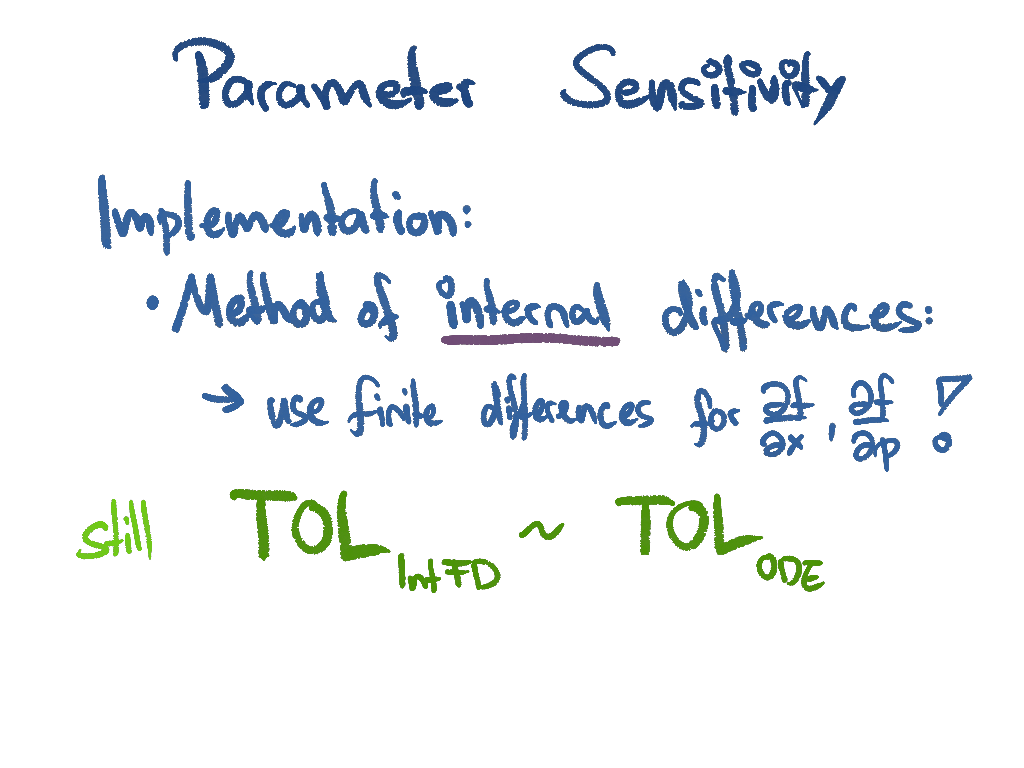 Parameter Sensitivity
Implementation:
• Method of internal differences:
→ use finite differences for ∂f/∂x, ∂f/∂p !
still TOL_IntFD ~ TOL_ODE